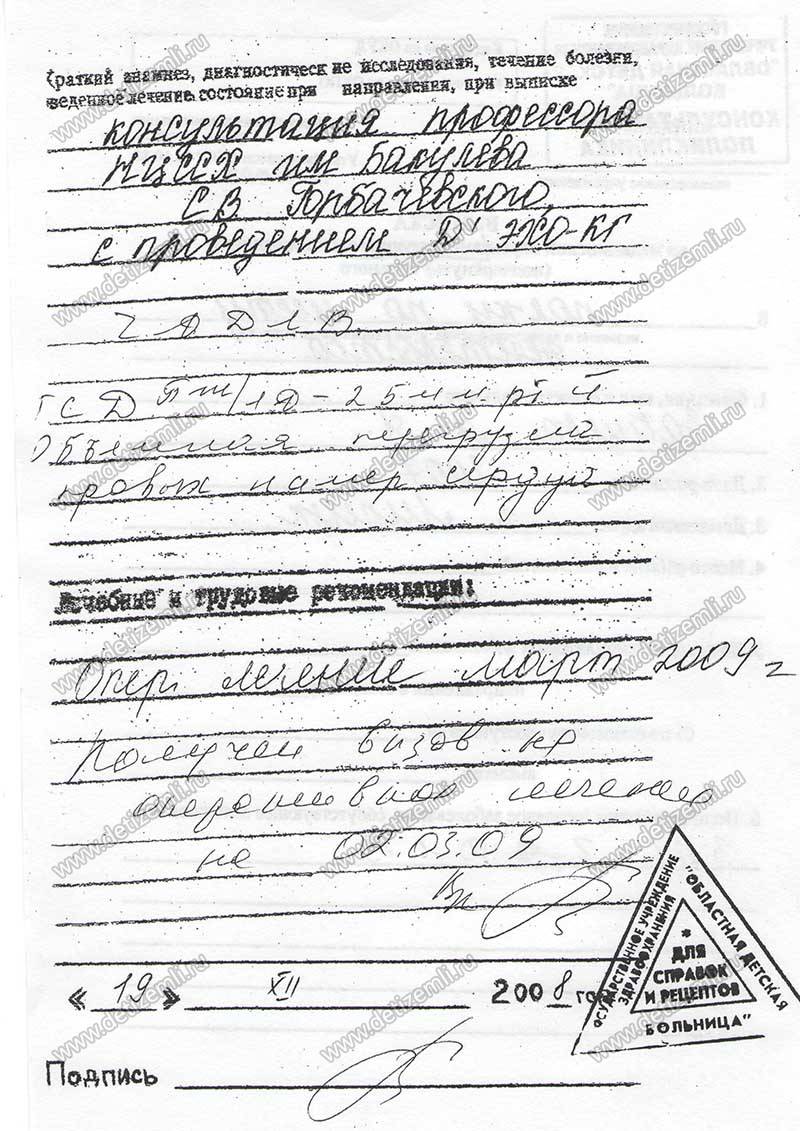 Краткий анамнез, диагностические исследования, течение болезни,
веденное лечение, состояние при направлении, при выписке
консультация профессора
НЦССХ им Бакулева
СВ Горбачевского,
с проведением ЭХО-КГ
Объемная перегрузка
правых камер
Лечебные и трудовые рекомендации:
Опер. лечение март 2009 г
Получен вызов на
оперативное лечение
на 02.03.09
« 19 » XII 2008 год
Подпись
ГОСУДАРСТВЕННОЕ УЧРЕЖДЕНИЕ
ЗДРАВООХРАНЕНИЯ
"ОБЛАСТНАЯ ДЕТСКАЯ
БОЛЬНИЦА"
*
ДЛЯ
СПРАВОК
И РЕЦЕПТОВ
www.detizemli.ru